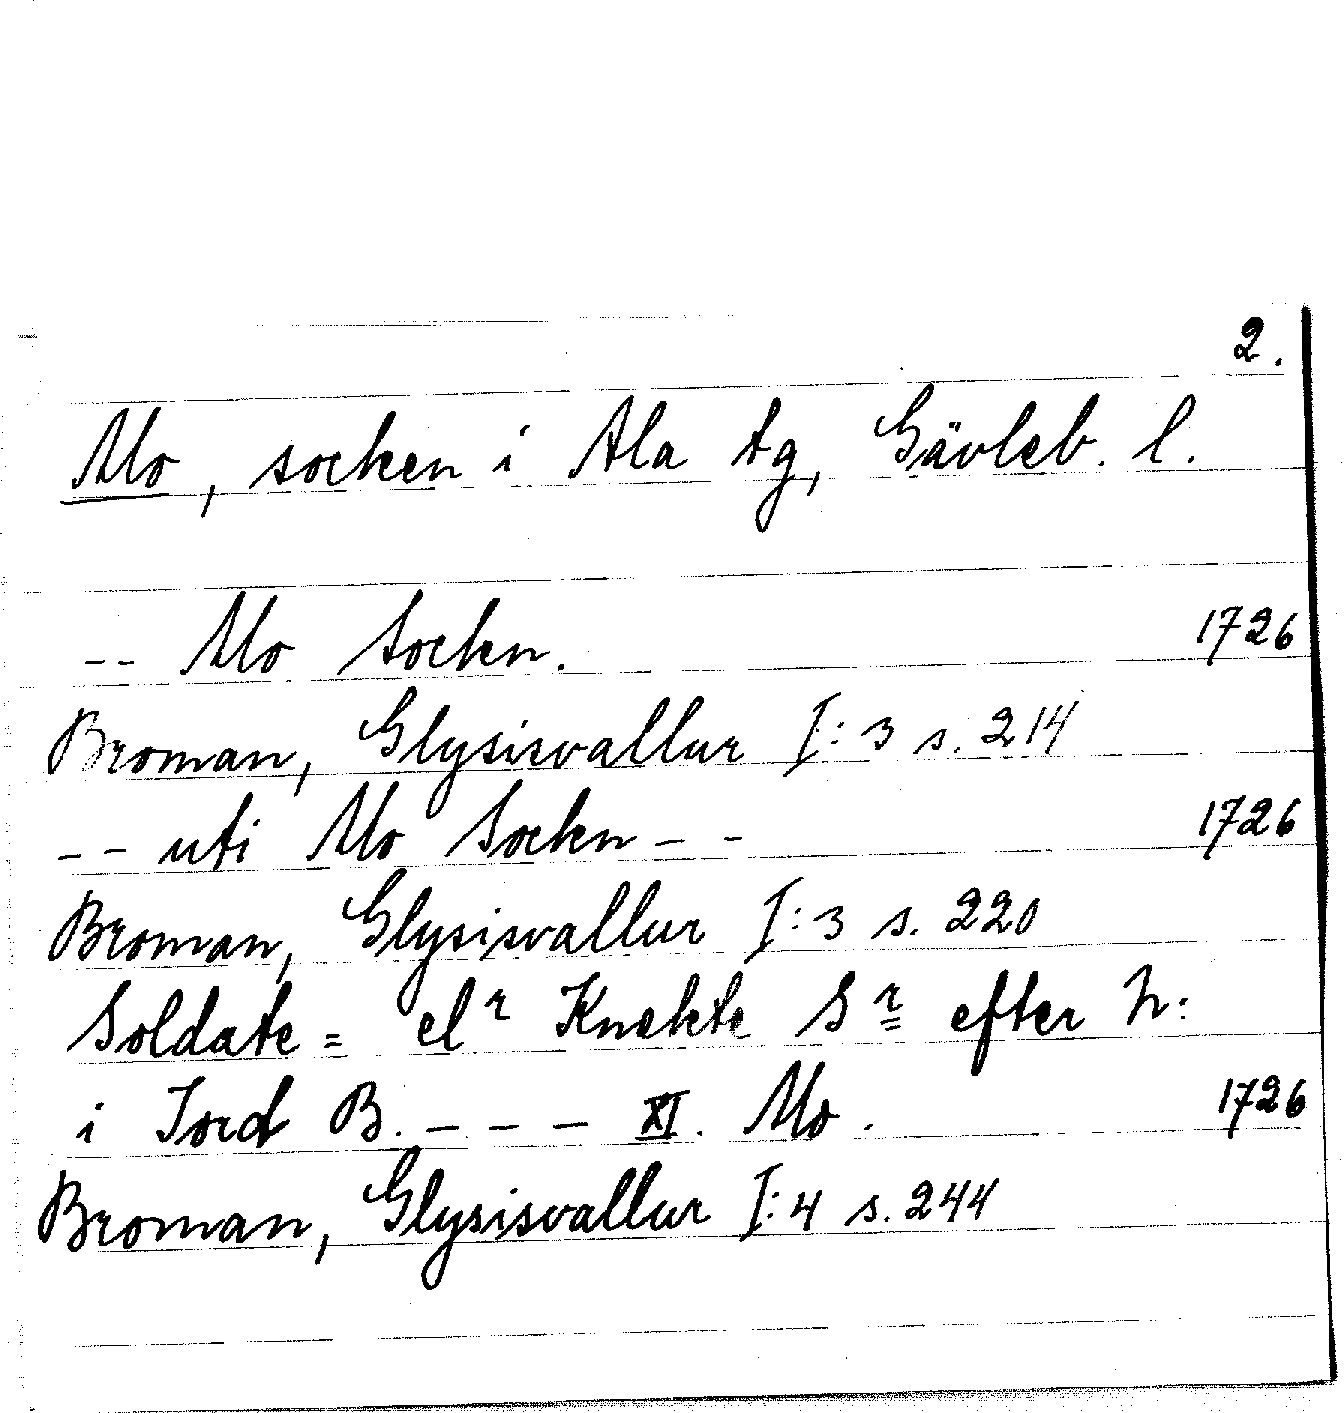 2.
Mo, socken i Ala tg, Gävleb. l.
-- Mo Sockn. 1726
Broman, Glysisvallur I:3 s. 214
-- uti Mo Sockn -- 1726
Broman, Glysisvallur I:3 s. 220
Soldate= elr Knekte Sr efter N:
i Jord B. --- XI. Mo. 1726
Broman, Glysisvallur I:4 s. 244